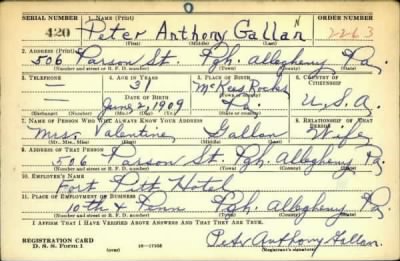 SERIAL NUMBER 1. NAME (Print) ORDER NUMBER
420 Peter Anthony Gallan 2263
(First) (Middle) (Last)
2. ADDRESS (Print)
506 Parson St. Pgh. Allegheny Pa.
(Number and street or R. F. D. number) (Town) (County) (State)
3. TELEPHONE 4. AGE IN YEARS 5. PLACE OF BIRTH 6. COUNTRY OF CITIZENSHIP
— 31 McKees Rocks
DATE OF BIRTH
— June 2, 1909 Pa. U.S.A.
7. NAME OF PERSON WHO WILL ALWAYS KNOW YOUR ADDRESS 8. RELATIONSHIP OF THAT PERSON
Mrs. Valentine Gallan Wife
(Mr., Mrs., Miss) (First) (Middle) (Last)
9. ADDRESS OF THAT PERSON
506 Parson St. Pgh. Allegheny Pa.
(Number and street or R. F. D. number) (Town) (County) (State)
10. EMPLOYER'S NAME
Fort Pitt Hotel
11. PLACE OF EMPLOYMENT OR BUSINESS
10th & Penn Pgh. Allegheny Pa.
(Number and street or R. F. D. number) (Town) (County) (State)
I AFFIRM THAT I HAVE VERIFIED ABOVE ANSWERS AND THAT THEY ARE TRUE.
REGISTRATION CARD
D. S. S. Form 1 (over) 16—17105 Peter Anthony Gallan
(Registrant's signature)